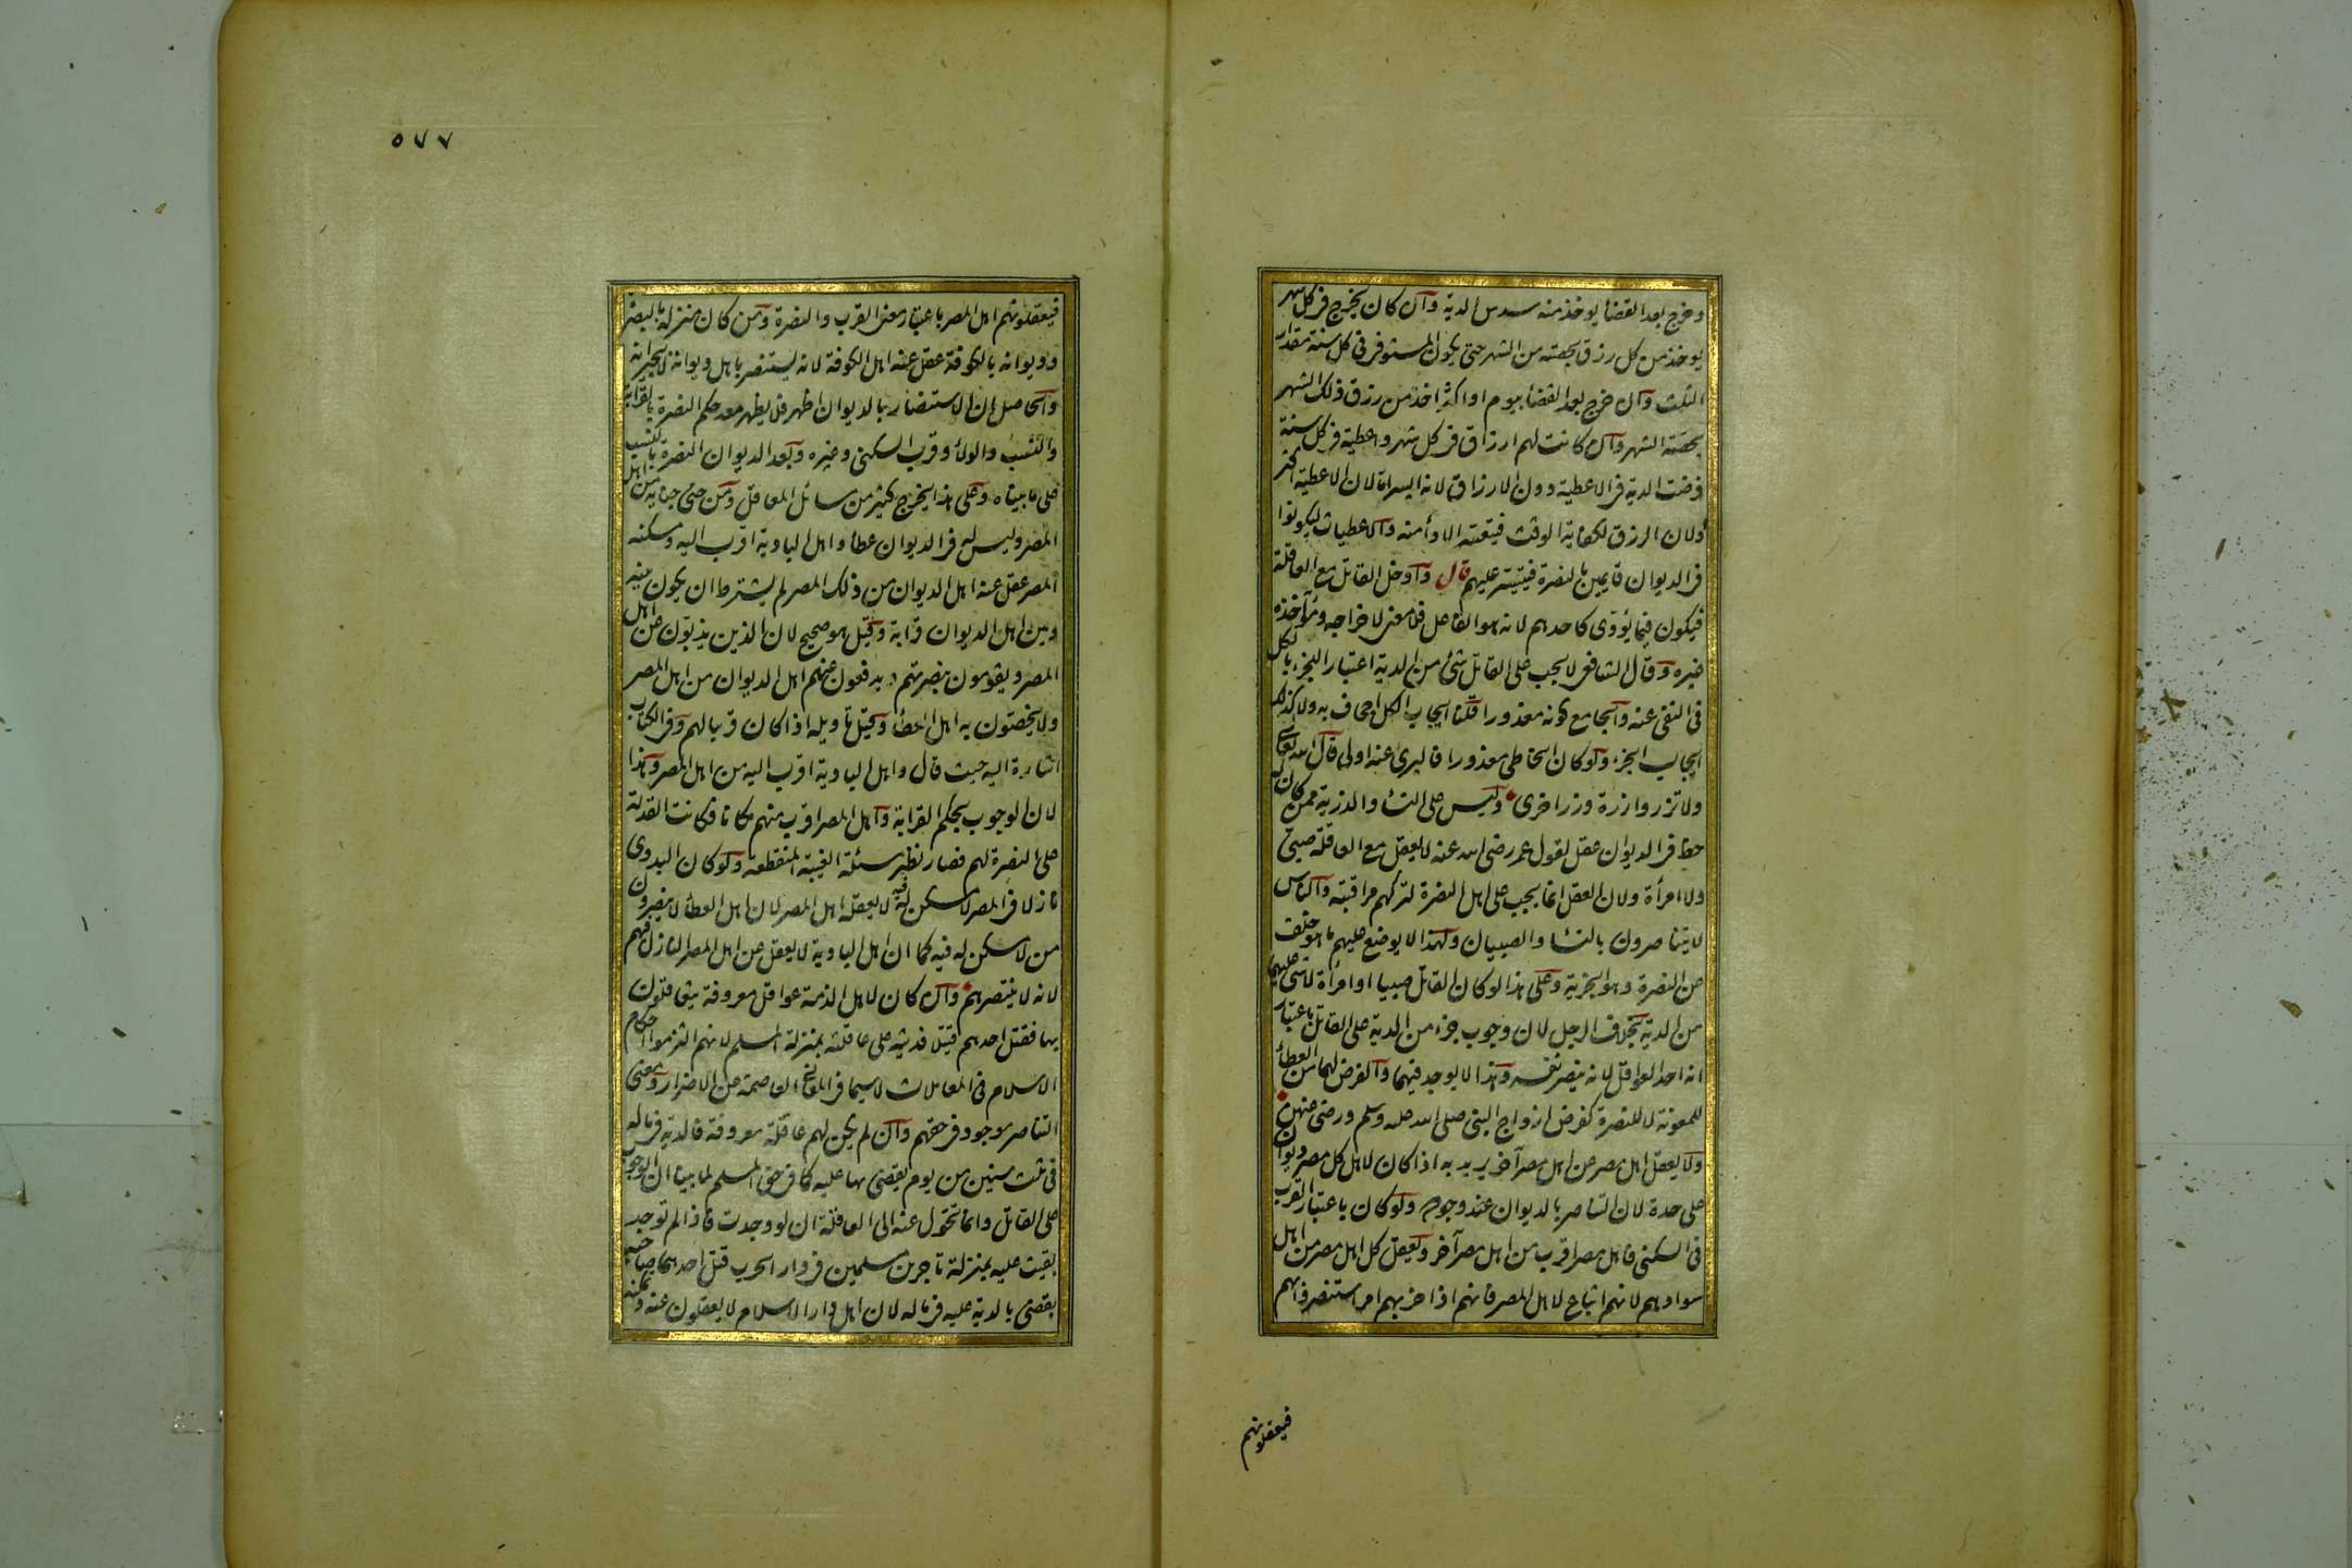 وخرج بعد القضاء يوخذ منه سدس الدية وان كان يخرج فى كل شهر
يوخذ من كل رزق بحصته من الشهر حتى يكون المستوفى فى كل سنة مقدار
الثلث وان خرج بعد القضا بيوم او اكثر اخذ من رزق ذلك الشهر
بحصة الشهر وان كانت لهم ارزاق فى كل شهر واعطية فى كل سنة
فرضت الدية فى الاعطية دون الارزاق لانه ايسر اما لان الاعطية اكثر
أو لان الرزق لكفاية الوقت فيتعسر الادأ منه والاعطيات ليكونوا
فى الديوان قايمين بالنصرة فيتيسر عليهم قال وادخل القاتل مع العاقلة
فيكون فيما يؤدى كاحدهم لانه هو الفاعل فلا معنى لاخراجه ومؤاخذة
غيره وقال الشافعى لا يجب على القاتل شئ من الدية اعتبارا للجزء بالكل
فى النفى عنه والجامع كونه معذورا قلنا ايجاب الكل اجحاف به ولا كذلك
ايجاب الجزء ولو كان الخاطى معذورا فالبرئ عنه اولى قال الله تعالى
ولا تزر وازرة وزر اخرى وليس على النسا والذرية ممن كان له
حظ فى الديوان عقل لقول عمر رضى الله عنه لا يعقل مع العاقلة صبى
ولا امرأة ولان العقل انما يجب على اهل النصرة لتركهم مراقبته والناس
لا يتناصرون بالنسا والصبيان ولهذا لا يوضع عليهم ما هو خلف
عن النصرة وهو الجزية وعلى هذا لو كان القاتل صبيا او امرأة لا شئ عليهما
من الدية بخلاف الرجل لان وجوب جزء من الدية على القاتل باعتبار
انه احد العواقل لانه ينصر نفسه وهذا لا يوجد فيهما والفرض لهما من العطأ
للمعونة لا للنصرة كفرض ازواج النبى صلى الله عليه وسلم ورضى عنهن
ولا يعقل اهل مصر عن اهل مصر آخر يريد به اذا كان لاهل كل مصر ديوان
على حدة لان التناصر بالديوان عند وجوده ولو كان باعتبار القرب
فى السكنى فاهل مصر اقرب من اهل مصر آخر ويعقل كل اهل مصر من اهل
سوادهم لانهم اتباع لاهل المصر فانهم اذا حزبهم امر استنصروا بهم
فيعقلونهم
٥٧٧
فيعقلونهم اهل المصر باعتبار معنى القرب والنصرة ومن كان منزله بالبصرة
وديوانه بالكوفة عقل عنه اهل الكوفة لانه يستنصر باهل ديوانه لا بجيرانه
والحاصل ان الاستنصار بالديوان اظهر فلا يظهر معه حكم النصرة بالقرابة
والنسب والولأ وقرب السكنى وغيره وبعد الديوان النصرة بالنسب
على ما بيناه وعلى هذا يخرج كثير من مسائل المعاقل ومن جنى جناية من اهل
المصر وليس له فى الديوان عطأ واهل البادية اقرب اليه ومسكنه
المصر عقل عنه اهل الديوان من ذلك المصر لم يشترط ان يكون بينه
وبين اهل الديوان قرابة وقيل هو صحيح لان الذين يذبون عن اهل
المصر ويقومون بنصرتهم ويدفعون عنهم اهل الديوان من اهل المصر
ولا يخصون به اهل العطأ وقيل تاويله اذا كان قريبا لهم وفى الكتاب
اشارة اليه حيث قال واهل البادية اقرب اليه من اهل المصر وهذا
لان الوجوب بحكم القرابة واهل المصر اقرب منهم مكانا فكانت القدرة
على النصرة لهم فصار نظير مسئلة الغيبة المنقطعة ولو كان البدوى
نازلا فى المصر لا مسكن له فيه لا يعقله اهل المصر لان اهل العطأ لا ينصرون
من لا مسكن له فيه كما ان اهل البادية لا يعقل عن اهل المصر النازل فيهم
لانه لا ينتصر بهم وان كان لاهل الذمة عواقل معروفة يتعاقلون
بها فقتل احدهم قتيلا فديته على عاقلته بمنزلة المسلم لانهم التزموا احكام
الاسلام فى المعاملات لا سيما فى المعانى العاصمة عن الاضرار ومعنى
التناصر موجود فى حقهم وان لم يكن لهم عاقلة معروفة فالدية فى ماله
فى ثلث سنين من يوم يقضى بها عليه كما فى حق المسلم لما بينا ان الوجوب
على القاتل وانما تتحول عنه الى العاقلة ان لو وجدت فاذا لم توجد
بقيت عليه بمنزلة تاجرين مسلمين فى دار الحرب قتل احدهما صاحبه
يقضى بالدية عليه فى ماله لان اهل دار الاسلام لا يعقلون عنه